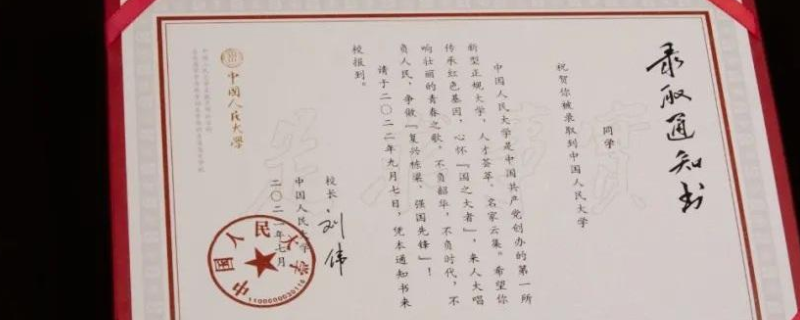 录取通知书
同学：
祝贺你被录取到中国人民大学
中国人民大学是中国共产党创办的第一所
新型正规大学，人才荟萃，名家云集。希望你
传承红色基因，心怀『国之大者』，来人大唱
响壮丽的青春之歌，不负韶华，不负时代，不
负人民，争做『复兴栋梁，强国先锋』！
请于二〇二二年九月七日，凭本通知书来
校报到。
校长 刘伟
中国人民大学
二〇二二年七月
中国人民大学
中國人民大學